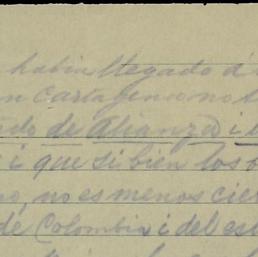 habia llegado á
en Cartagena no
de Alianza i
i que si bien los
no, no es menos cier
de Colombia i del es